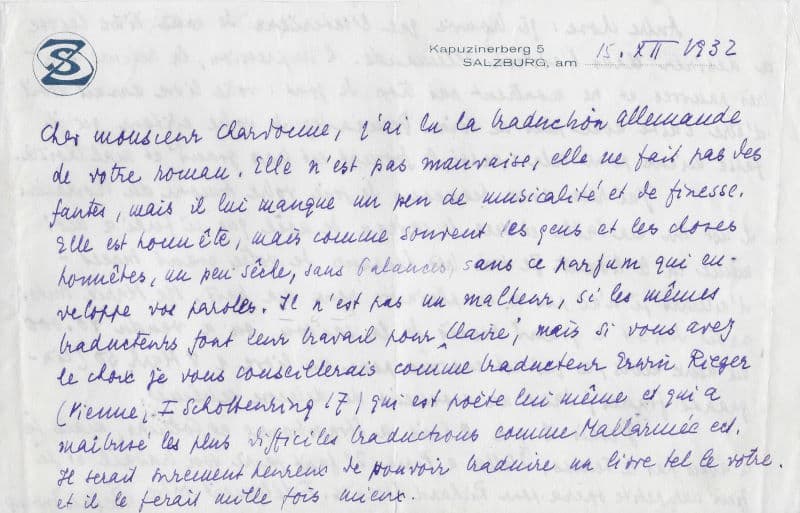 SZ
Kapuzinerberg 5
SALZBURG, am 15. XII 1932
Cher monsieur Chardonne, j'ai lu la traduction allemande
de votre roman. Elle n'est pas mauvaise, elle ne fait pas des
fautes, mais il lui manque un peu de musicalité et de finesse.
Elle est honnête, mais comme souvent les gens et les choses
honnêtes, un peu sèche, sans balances, sans ce parfum qui en-
veloppe vos paroles. Il n'est pas un malheur, si les mêmes
traducteurs font leur travail pour "Claire", mais si vous avez
le choix je vous conseillerais comme traducteur Erwin Rieger
(Vienne, I Schottenring 17) qui est poète lui même et qui a
maîtrisé les plus difficiles traductions comme Mallarmée ect.
Il serait sûrement heureux de pouvoir traduire un livre tel le votre.
et il le ferait mille fois mieux.